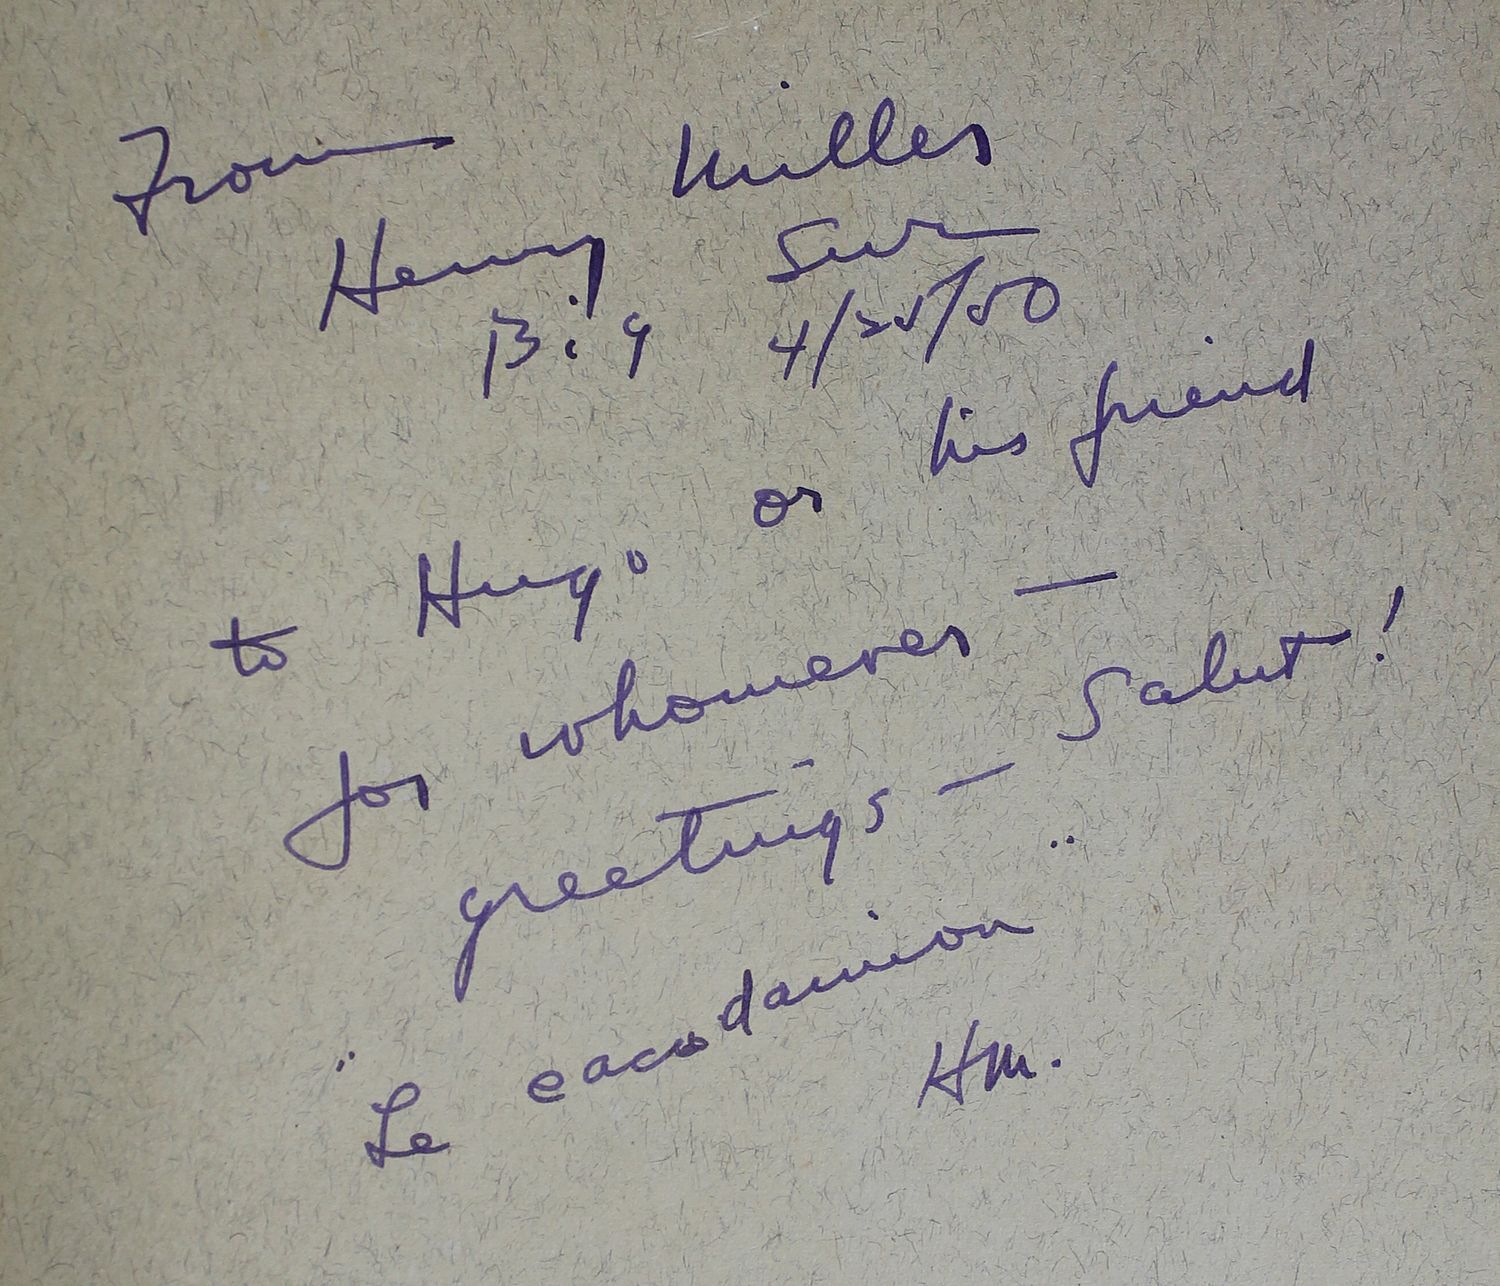 From
Henry Miller
Big Sur
4/25/50
to Hugo or his friend
for whomever —
greetings — Salut!
"Le eacodamion"
HM.